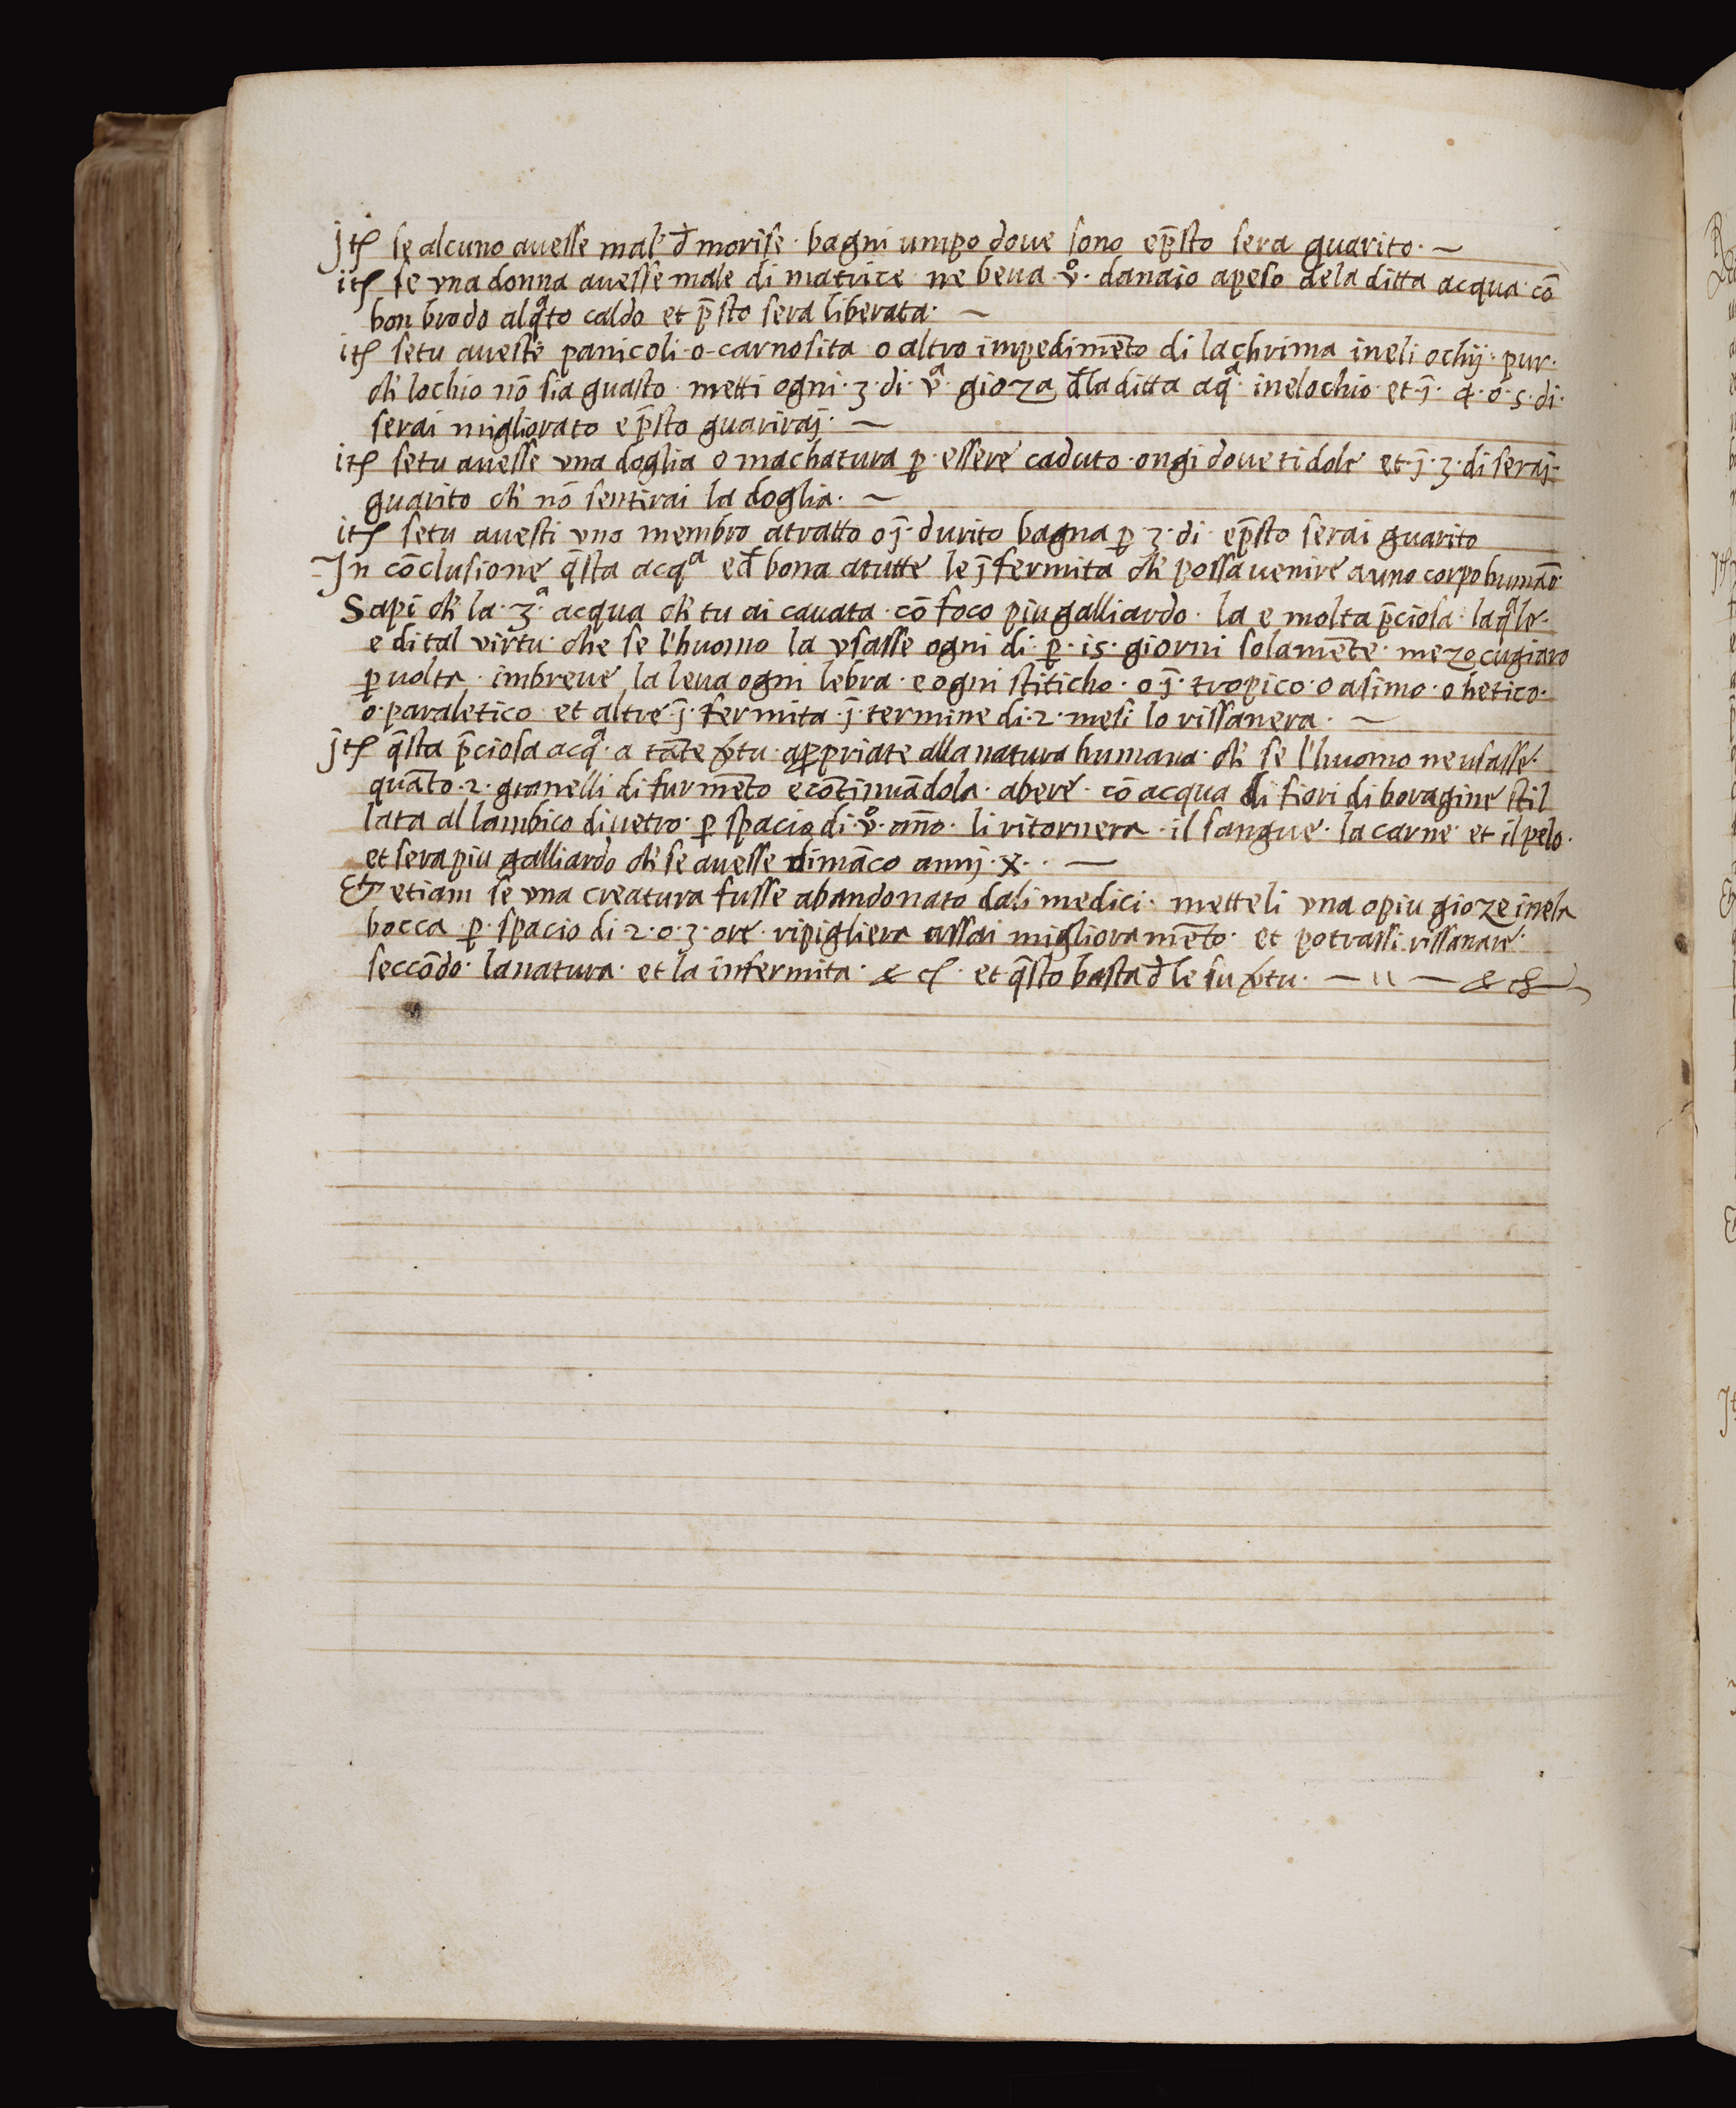 jtꝭ se alcuno auesse male đ morise · bagni umpo doue sono ep̄sto sera guarito · ~
itꝭ se vna donna auesse male di matrice ne beua · v̊ · danaio apeso dela ditta acqua · cō
bon brodo alqͣto caldo et p̄sto sera liberata · ~
itꝭ setu aueste panicoli · o · carnosita o altro impedimēto di lachrima ineli ochij · pur ·
ch' lochio nō sia guasto · metti ogni · 3 · di · vͣ · gioza đla ditta aqͣ · inelochio et · j̄ · 4 · o · 5 · di ·
serai migliorato e p̄sto guariraj · ~
itꝭ setu auesse vna doglia o machatura ꝑ · essere caduto · ongi doue ti dole et · j̄ · 3 · di seraj ·
guarito ch' nō sentirai la doglia · ~
itꝭ setu auesti vno membro atratto o j̄ · durito bagna ꝑ · 3 · di · ep̄sto serai guarito
In cōclusione q̄sta acqͣ eđ bona atutte le j̄fermita ch' possa uenire a uno corpo humāo ·
Sapi ch' la · 3ͣ · acqua ch' tu ai cauata · cō foco piu galliardo · la e molta p̄ciosa · laqͣle ·
e di tal virtu · che se l'huomo la vsasse ogni di · ꝑ · 15 · giorni solamēte · mezo cugiaro
ꝑ uolta · imbreue la leua ogni lebra · e ogni stiticho · o j̄ · tropico · o asimo · o hetico ·
o · paraletico et altre · j̄ · fermita · j̄ · termine di · 2 · mesi lo rissanera · ~
jtꝭ q̄sta p̄ciosa acqͣ · a tāte v̄tu · apꝓpriate alla natura humana · ch' se l'huomo ne usasse ·
quāto · 2 · granelli di furmēto e cōtinuādola · abere · cō acqua di fiori di boragine stil
lata al lambico di uetro · ꝑ spacio di · v̊ · āno · li ritornera · il sangue · la carne et il pelo ·
et sera piu galliardo ch' se auesse dimāco annj · x · · ~
Et etiam se vna creatura fusse abandonato dali medici · metteli vna o piu gioze inela
bocca · ꝑ · spacio di · 2 · o · 3 · ore · ripigliera assai miglioramēto · et potrassi rissanare ·
seccōdo · la natura · et la infermita · & cꝭ · et q̄sto basta đ le su v̄tu · ~ 11 ~ & cꝭ